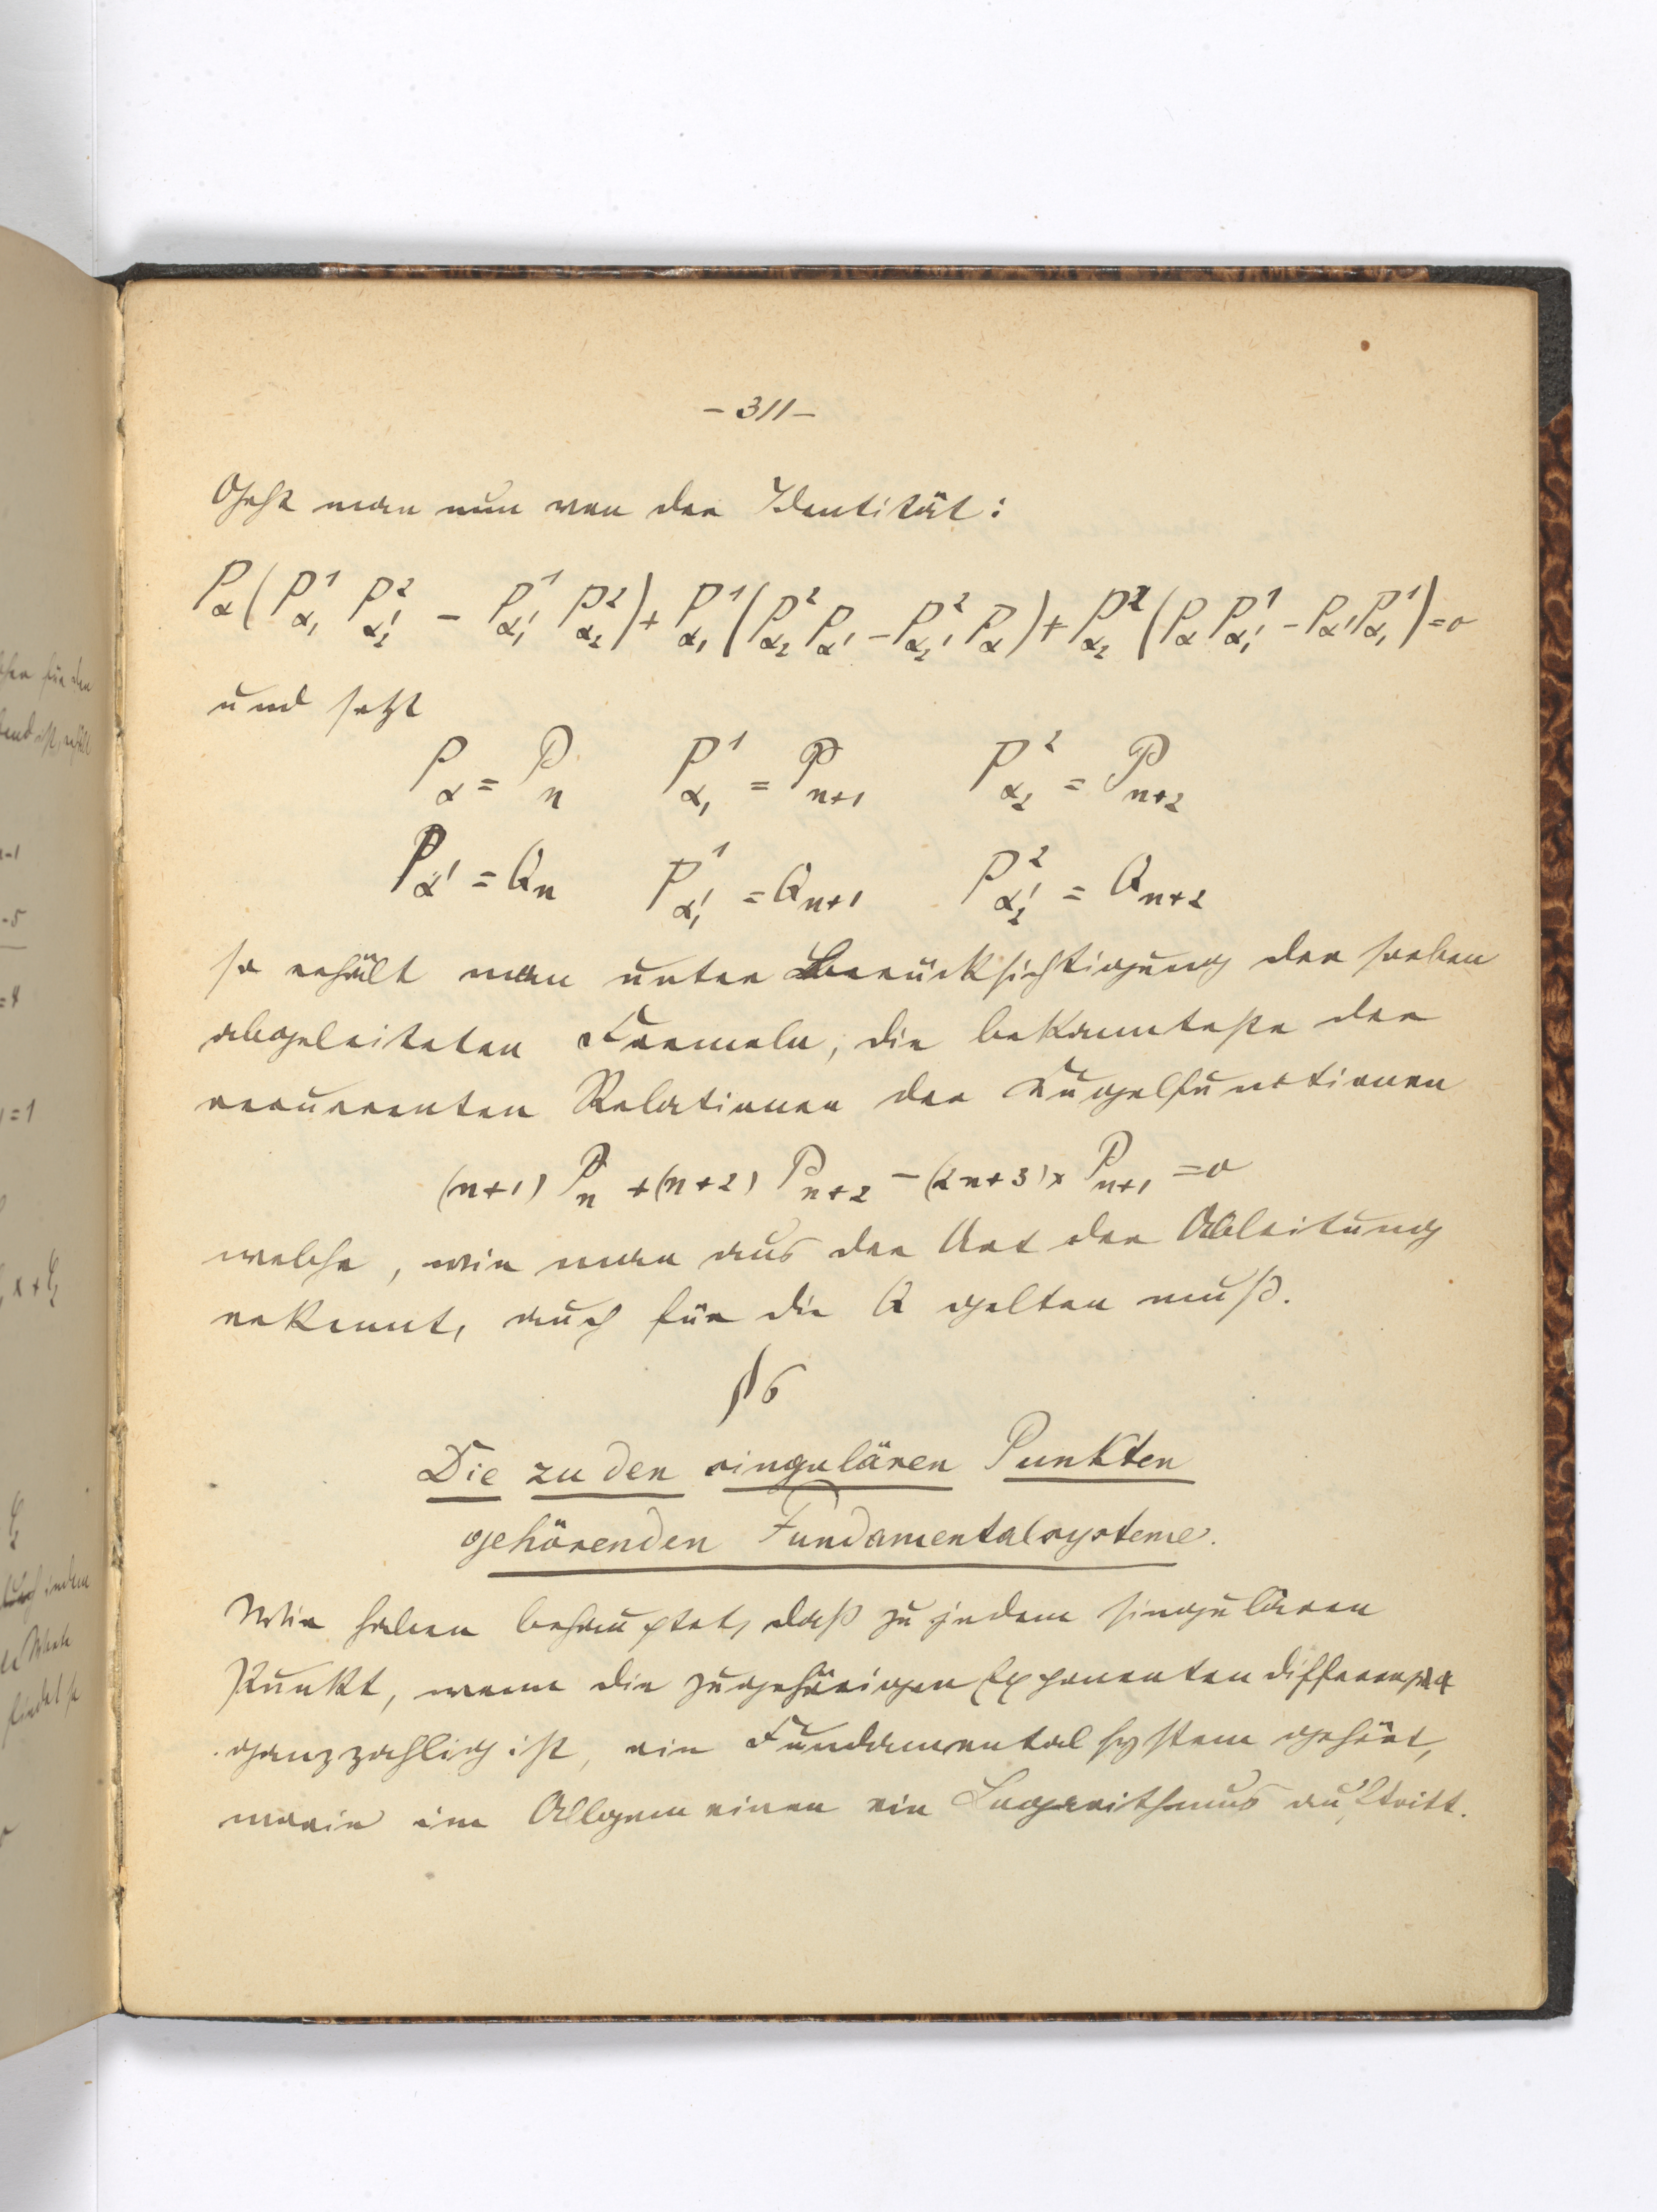 – 311 –
Geht man nun von der Identität:
P_α (P^1_{α_1} P^2_{α_2'} – P^1_{α_1'} P^2_{α_2}) + P^1_{α_1} (P^2_{α_2} P_{α'} – P^2_{α_2'} P_α) + P^2_{α_2} (P_α P^1_{α_1'} – P_{α'} P^1_{α_1}) = 0
und setzt
P_α = P_n P^1_{α_1} = P_{n+1} P^2_{α_2} = P_{n+2}
P_{α'} = Q_n P^1_{α_1'} = Q_{n+1} P^2_{α_2'} = Q_{n+2}
so erhält man unter Berücksichtigung der soeben
abgeleiteten Formeln, die bekannteste der
recurrenten Relationen der Kugelfunctionen
(n+1) P_n + (n+2) P_{n+2} – (2n+3) x P_{n+1} = 0
welche, wie man aus der Art der Ableitung
erkennt, auch für die Q gelten muß.
§ 6
Die zu den singulären Punkten
gehörenden Fundamentalsysteme.
Wir haben behauptet, daß zu jedem singulären
Punkt, wenn die zugehörigen Exponentendifferenz
ganzzahlig ist, ein Fundamentalsystem gehört,
worin im Allgemeinen ein Logarithmus auftritt.